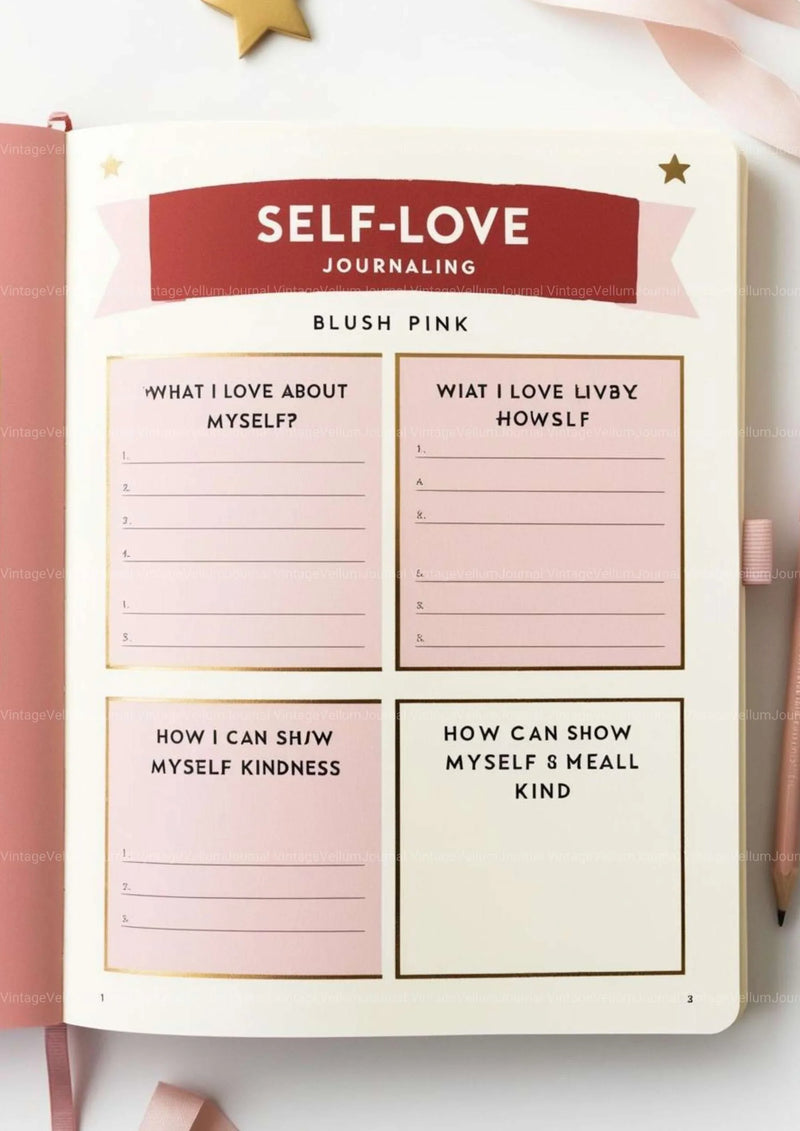 SELF-LOVE
JOURNALING
BLUSH PINK
WHAT I LOVE ABOUT
MYSELF?
1.
2.
3.
4.
1.
3.
WIAT I LOVE LIVBY
HOWSLF
1.
A
&.
3.
&.
HOW I CAN SHIW
MYSELF KINDNESS
1.
2.
3.
HOW CAN SHOW
MYSELF 8 MEALL
KIND
1
3
VintageVellumJournal VintageVellumJournal VintageVellumJournal